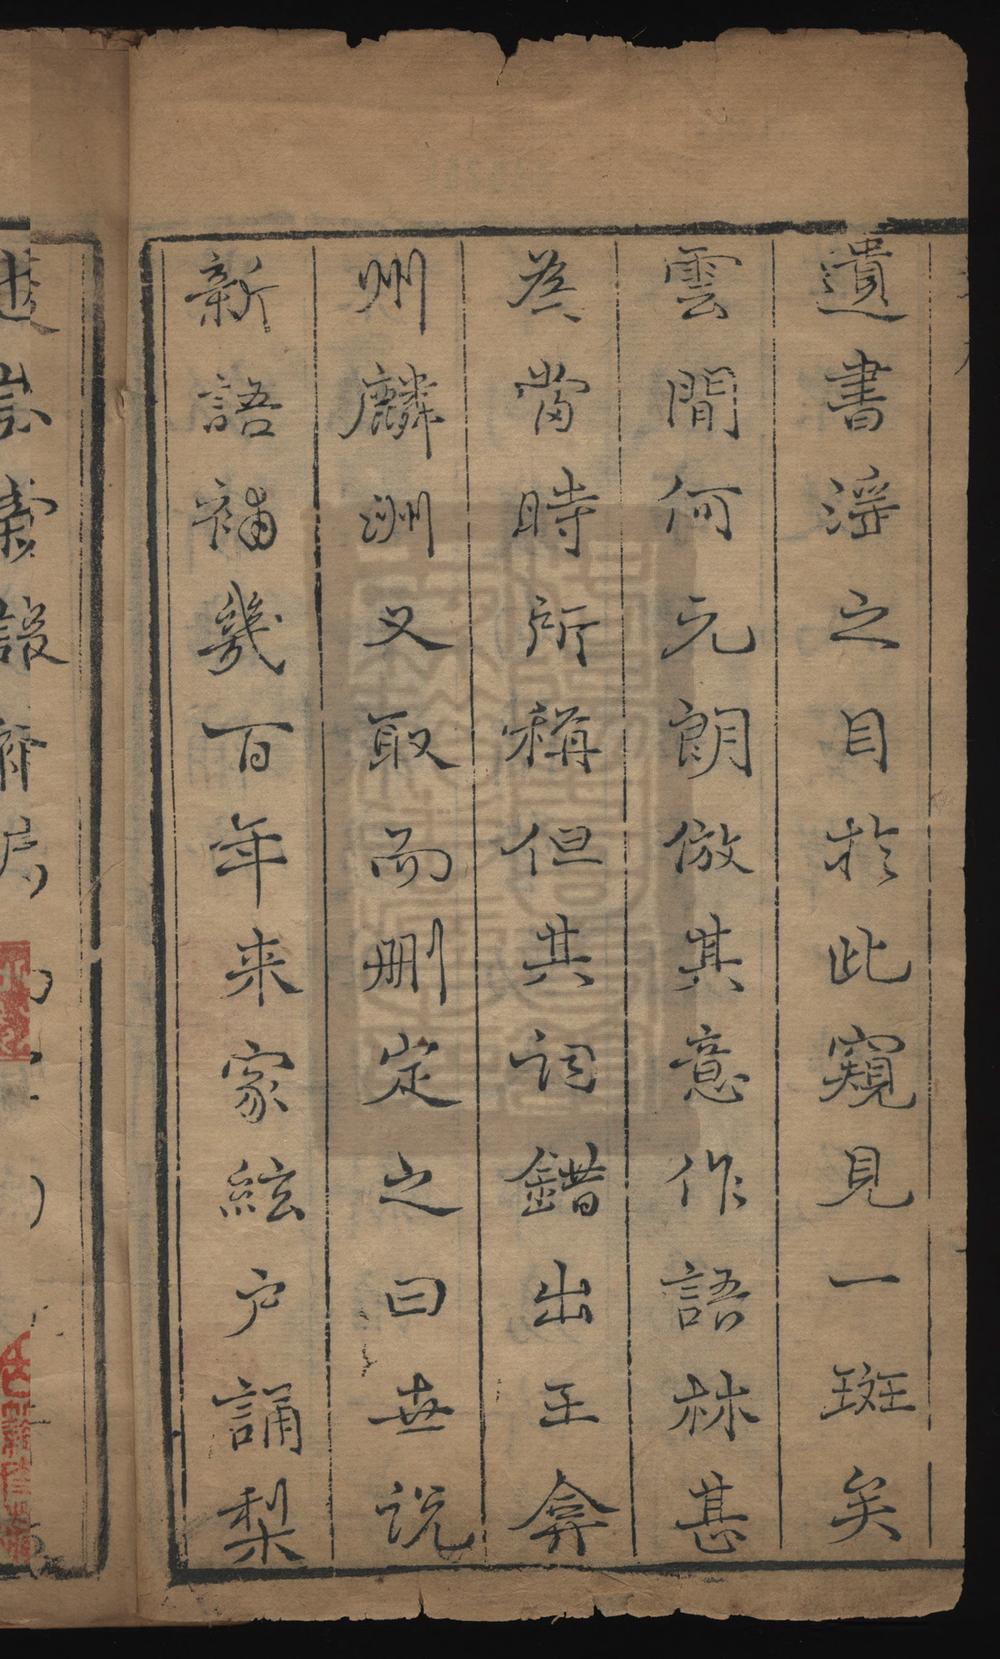 遺書淫之目於此窺見一斑矣
雲間何元朗倣其意作語林甚
為當時所稱但其詞錯出王弇
州麟洲又取而删定之曰世說
新語補幾百年来家絃户誦梨